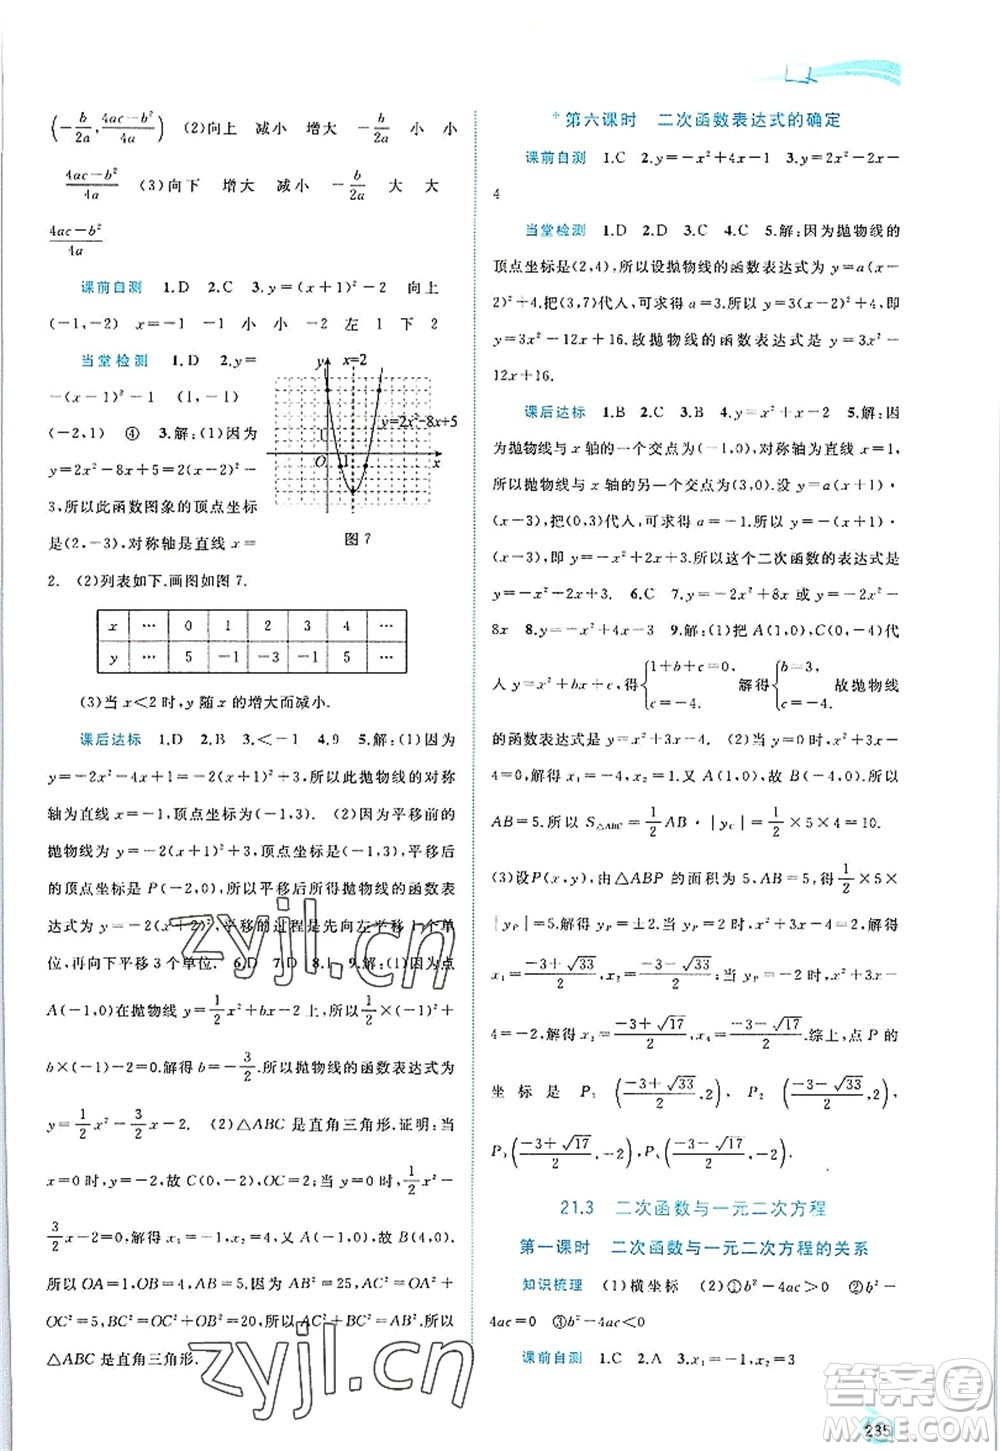 (-b/2a, (4ac-b²)/4a) (2)向上 减小 增大 -b/2a 小 小
(4ac-b²)/4a (3)向下 增大 减小 -b/2a 大 大
(4ac-b²)/4a
课前自测 1.D 2.C 3.y=(x+1)²-2 向上
(-1,-2) x=-1 -1 小 小 -2 左 1 下 2
当堂检测 1.D 2.y=
-(x-1)²-1 (1,-1)
(-2,1) ④ 3.解:(1)因为
y=2x²-8x+5=2(x-2)²-
3,所以此函数图象的顶点坐标
是(2,-3),对称轴是直线 x=
2. (2)列表如下.画图如图 7.
y
x=2
y=2x²-8x+5
1
O 1 x
图 7
x … 0 1 2 3 4 …
y … 5 -1 -3 -1 5 …
(3)当 x<2 时,y 随 x 的增大而减小.
课后达标 1.D 2.B 3.<-1 4.9 5.解:(1)因为
y=-2x²-4x+1=-2(x+1)²+3,所以此抛物线的对称
轴为直线 x=-1,顶点坐标为(-1,3). (2)因为平移前的
抛物线为 y=-2(x+1)²+3,顶点坐标为(-1,3),平移后
的顶点坐标是 P(-2,0),所以平移后的抛物线的函数表达
式为 y=-2(x+2)²,平移的过程是先向左平移 1 个单
位,再向下平移 3 个单位. 6.D 7.D 8.1 9.解:(1)因为点
A(-1,0)在抛物线 y=1/2x²+bx-2 上,所以1/2×(-1)²+
b×(-1)-2=0.解得 b=-3/2.所以抛物线的函数表达式为
y=1/2x²-3/2x-2. (2)△ABC 是直角三角形.证明:当
x=0 时,y=-2,所以 C(0,-2),则 OC=2.当 y=0 时,1/2x²-
3/2x-2=0,解得 x₁=-1,x₂=4,则 B(4,0).又A(-1,0),
所以 OA=1,OB=4,AB=5.因为 AB²=25,AC²=OA²+
OC²=5,BC²=OC²+OB²=20,所以 AC²+BC²=AB².所以
△ABC 是直角三角形.
第六课时 二次函数表达式的确定
课前自测 1.C 2.y=-x²+4x-1 3.y=2x²-2x-
4
当堂检测 1.D 2.D 3.C 4.C 5.解:因为抛物线的
顶点坐标是(2,4),所以设抛物线的函数表达式为 y=a(x-
2)²+4,把(3,7)代人,可得 a=3.所以 y=3(x-2)²+4,即
y=3x²-12x+16.故抛物线的函数表达式是 y=3x²-
12x+16.
课后达标 1.B 2.B 3.B 4.y=x²+x-2 5.解:因
为抛物线与 x 轴的一个交点为(-1,0),对称轴为 x=1,
所以抛物线与 x 轴的另一个交点为(3,0). 设 y=a(x+1)·
(x-3),把(0,3)代人,可得 3=a(0+1)(0-3).所以 a=-1,
故 y=-(x+1)(x-3).所以这个二次函数的表达式是
y=-x²+2x+3. 6.C 7.y=x²-2x 或 y=-x²-2x
8.y=-x²+4x-3 9.解:(1)把 A(1,0),C(0,-4)代
人 y=x²+bx+c,得{1+b+c=0, c=-4. 解得{b=3, c=-4. 故抛物线
的函数表达式为 y=x²+3x-4. (2)当 y=0 时,x²+3x-
4=0,解得 x₁=-4,x₂=1.又 A(1,0),故 B(-4,0).所以
AB=5.所以 S△ABC=1/2AB·|yC|=1/2×5×4=10.
(3)设P(x,y),由 △ABP 的面积为 5,得 1/2×5×
|yP|=5.解得 yP=±2.当 yP=2 时,x²+3x-4=2,解得
x₁=(-3+√33)/2,x₂=(-3-√33)/2;当 yP=-2 时,x²+3x-
4=-2,解得 x₃=(-3+√17)/2,x₄=(-3-√17)/2.综上,点 P 的
坐标是 P₁((-3+√33)/2,2),P₂((-3-√33)/2,2),
P₃((-3+√17)/2,-2),P₄((-3-√17)/2,-2).
21.3 二次函数与一元二次方程
第一课时 二次函数与一元二次方程的关系
知识梳理 (1)横坐标 (2)①b²-4ac>0 ②b²-
4ac=0 ③b²-4ac<0
课前自测 1.C 2.A 3.x₁=-1,x₂=3
235
zyjl.cn
zyjl.cn
答案圈
MXQE.COM